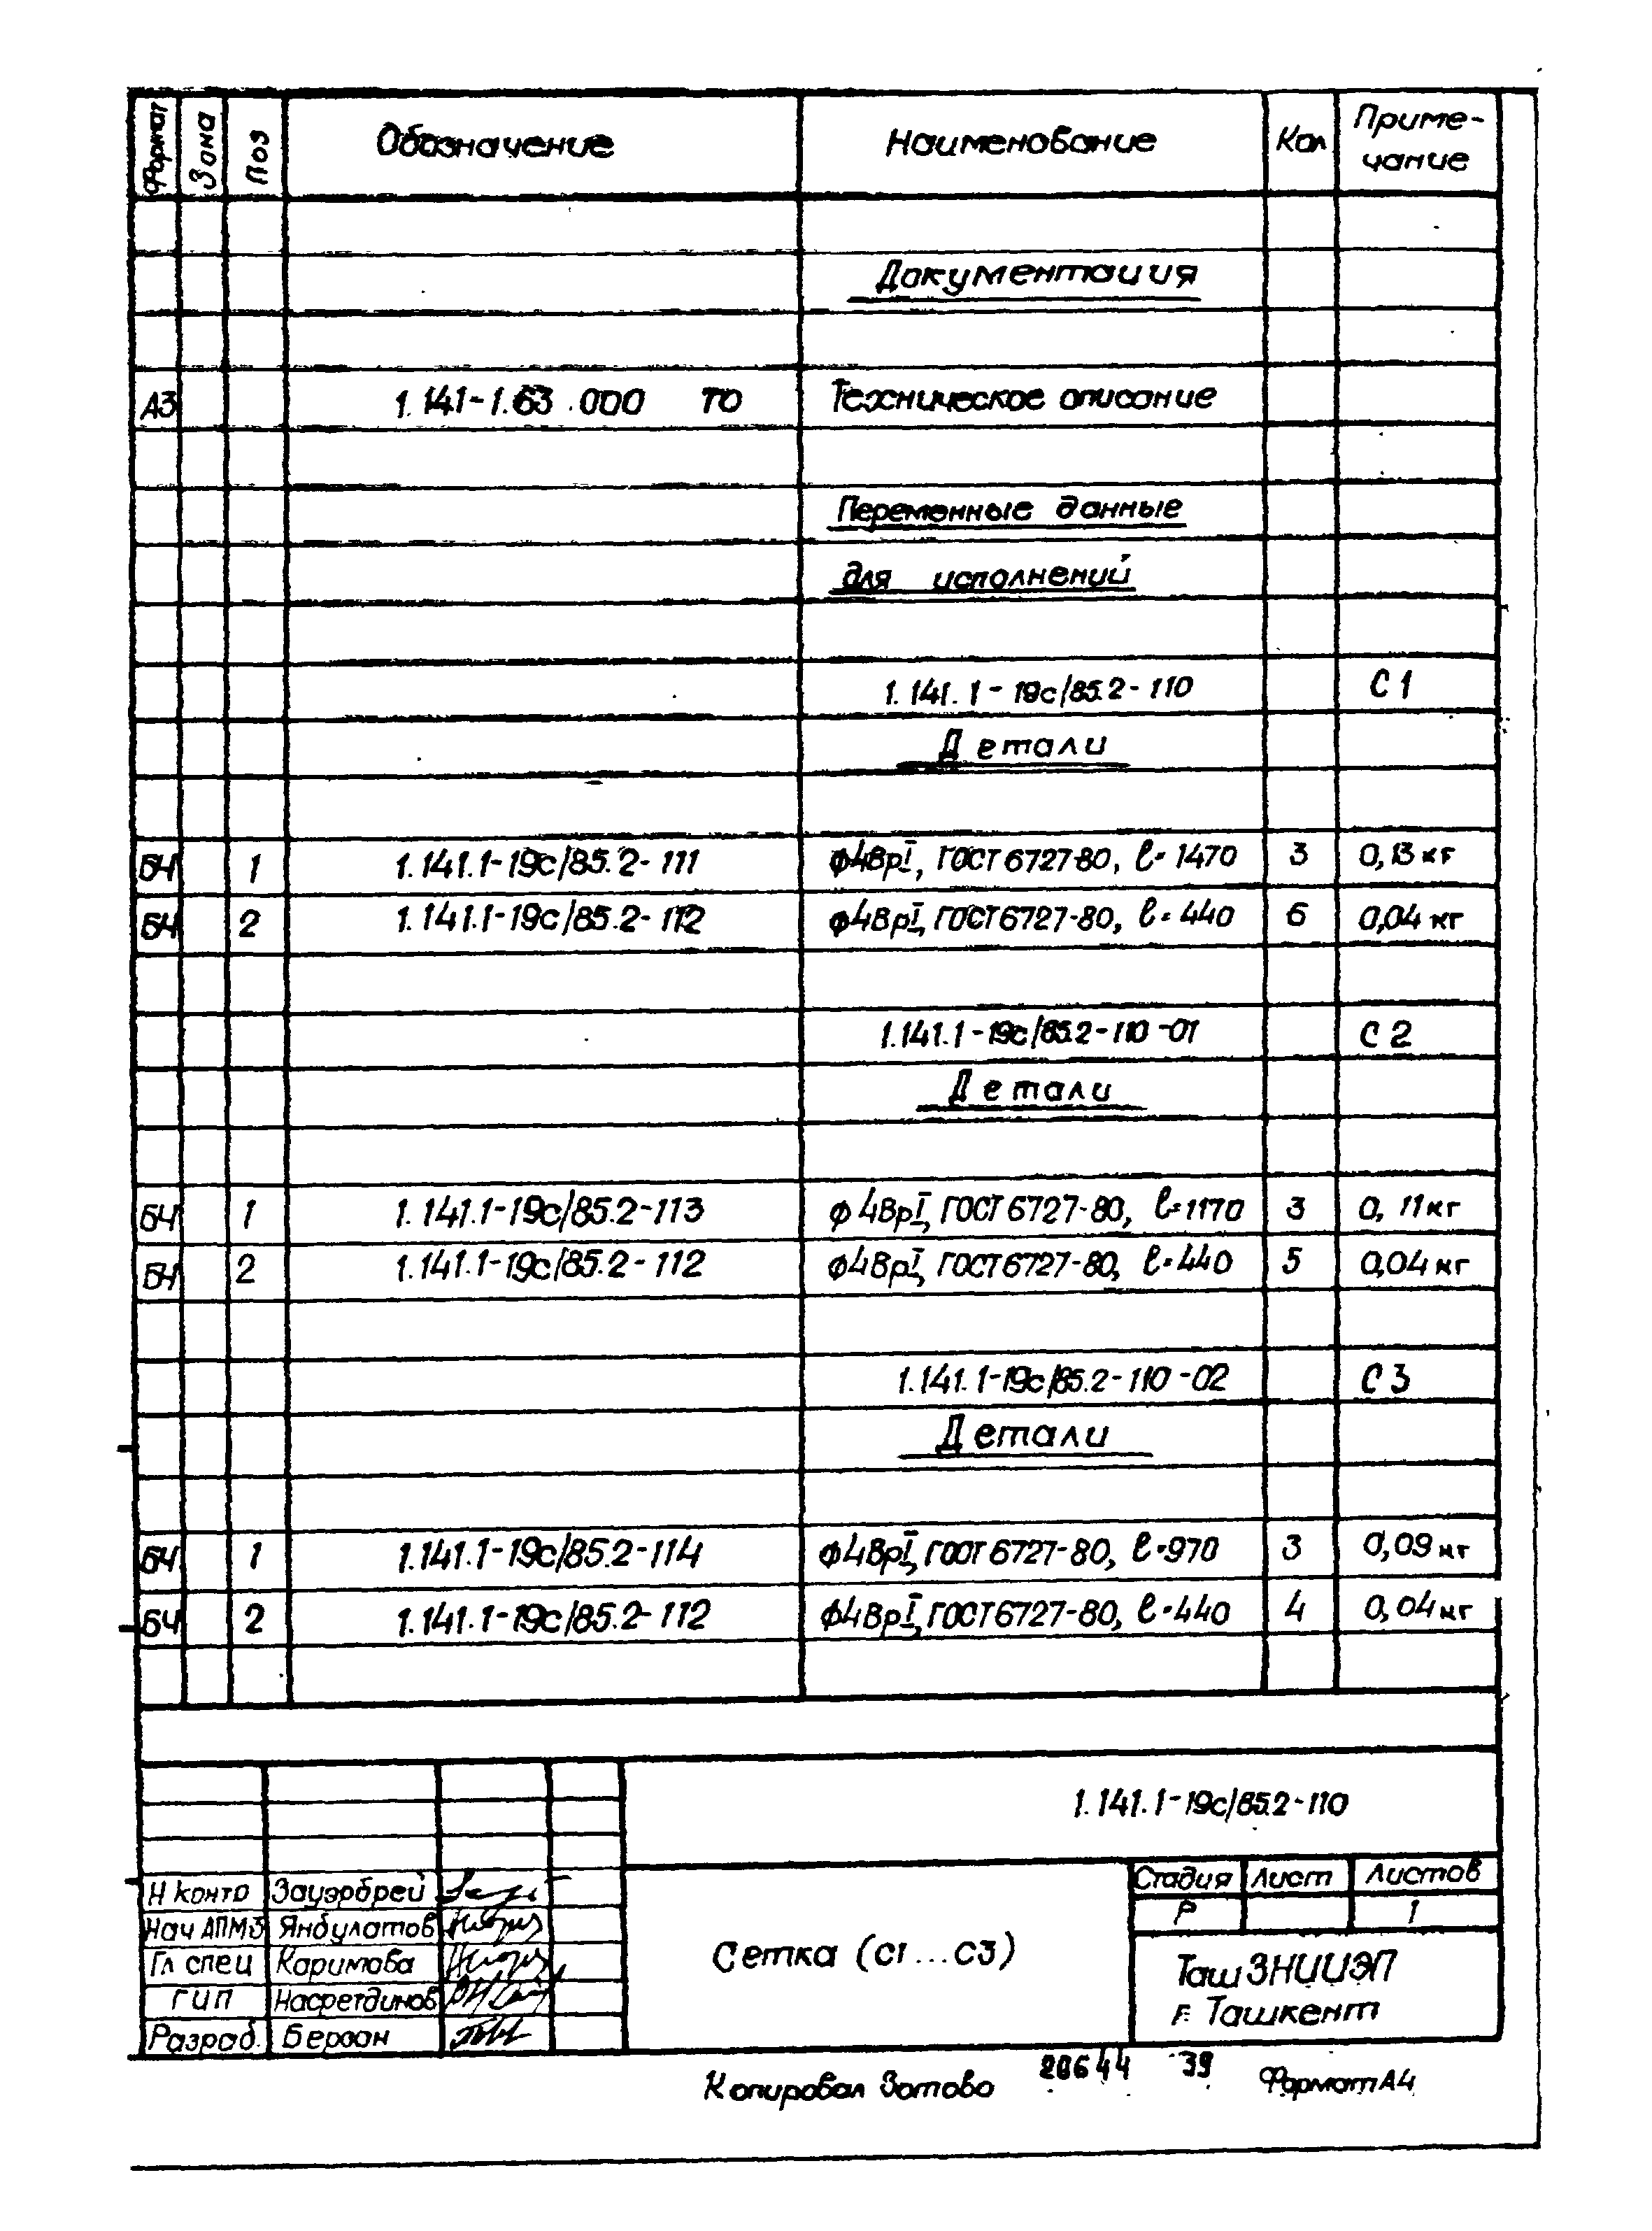 Формат Зона Поз Обозначение Наименование Кол Приме-
чание
Документация
А3 1.141-1.63.000 ТО Техническое описание
Переменные данные
для исполнений
1.141.1-19с/85.2-110 С1
Детали
БЧ 1 1.141.1-19с/85.2-111 ф4ВрI, ГОСТ 6727-80, l=1470 3 0,13 кг
БЧ 2 1.141.1-19с/85.2-112 ф4ВрI, ГОСТ 6727-80, l=440 6 0,04 кг
1.141.1-19с/85.2-110-01 С2
Детали
БЧ 1 1.141.1-19с/85.2-113 ф4ВрI, ГОСТ 6727-80, l=1170 3 0,11 кг
БЧ 2 1.141.1-19с/85.2-112 ф4ВрI, ГОСТ 6727-80, l=440 5 0,04 кг
1.141.1-19с/85.2-110-02 С3
Детали
БЧ 1 1.141.1-19с/85.2-114 ф4ВрI, ГОСТ 6727-80, l=970 3 0,09 кг
БЧ 2 1.141.1-19с/85.2-112 ф4ВрI, ГОСТ 6727-80, l=440 4 0,04 кг
1.141.1-19с/85.2-110
Н контр Зауэрбрей
Нач АПМ3 Янбулатов
Гл спец Каримова
ГИП Насретдинов
Разраб.
Сетка (С1...С3)
Стадия Лист Листов
Р 1
ТашЗНИИЭП
г. Ташкент
Копировал Зотова 20644 39 Формат А4